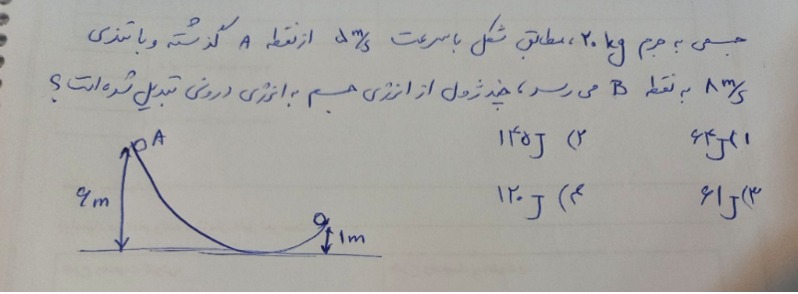 جسمی به جرم ۲۰ kg، مطابق شکل با سرعت ۵ m/s از نقطه A گذشته و با تندی
۸ m/s به نقطه B می رسد، چند ژول از انرژی جسم به انرژی درونی تبدیل شده است؟
۱) ۶۴J ۲) ۱۴۵J
۳) ۶۱J ۴) ۱۲۰J
A
۶m
۱m